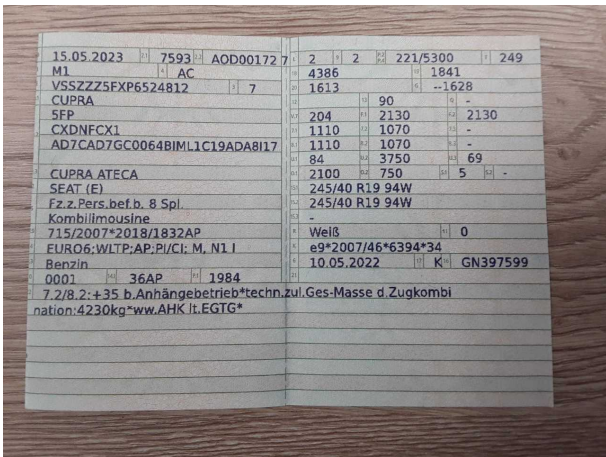 15.05.2023 7593 AOD00172 7
M1 AC
VSSZZZ5FXP6524812 7
CUPRA
5FP
CXDNFCX1
AD7CAD7GC0064BIML1C19ADA8I17
CUPRA ATECA
SEAT (E)
Fz.z.Pers.bef.b. 8 Spl.
Kombilimousine
715/2007*2018/1832AP
EURO6;WLTP;AP;PI/CI; M, N1 I
Benzin
0001 36AP 1984
2 2 221/5300 249
4386 1841
1613 --1628
90 -
204 2130 2130
1110 1070 -
1110 1070 -
84 3750 69
2100 750 5 -
245/40 R19 94W
245/40 R19 94W
-
Weiß 0
e9*2007/46*6394*34
10.05.2022 K GN397599
7.2/8.2:+35 b.Anhängebetrieb*techn.zul.Ges-Masse d.Zugkombi
nation:4230kg*ww.AHK lt.EGTG*